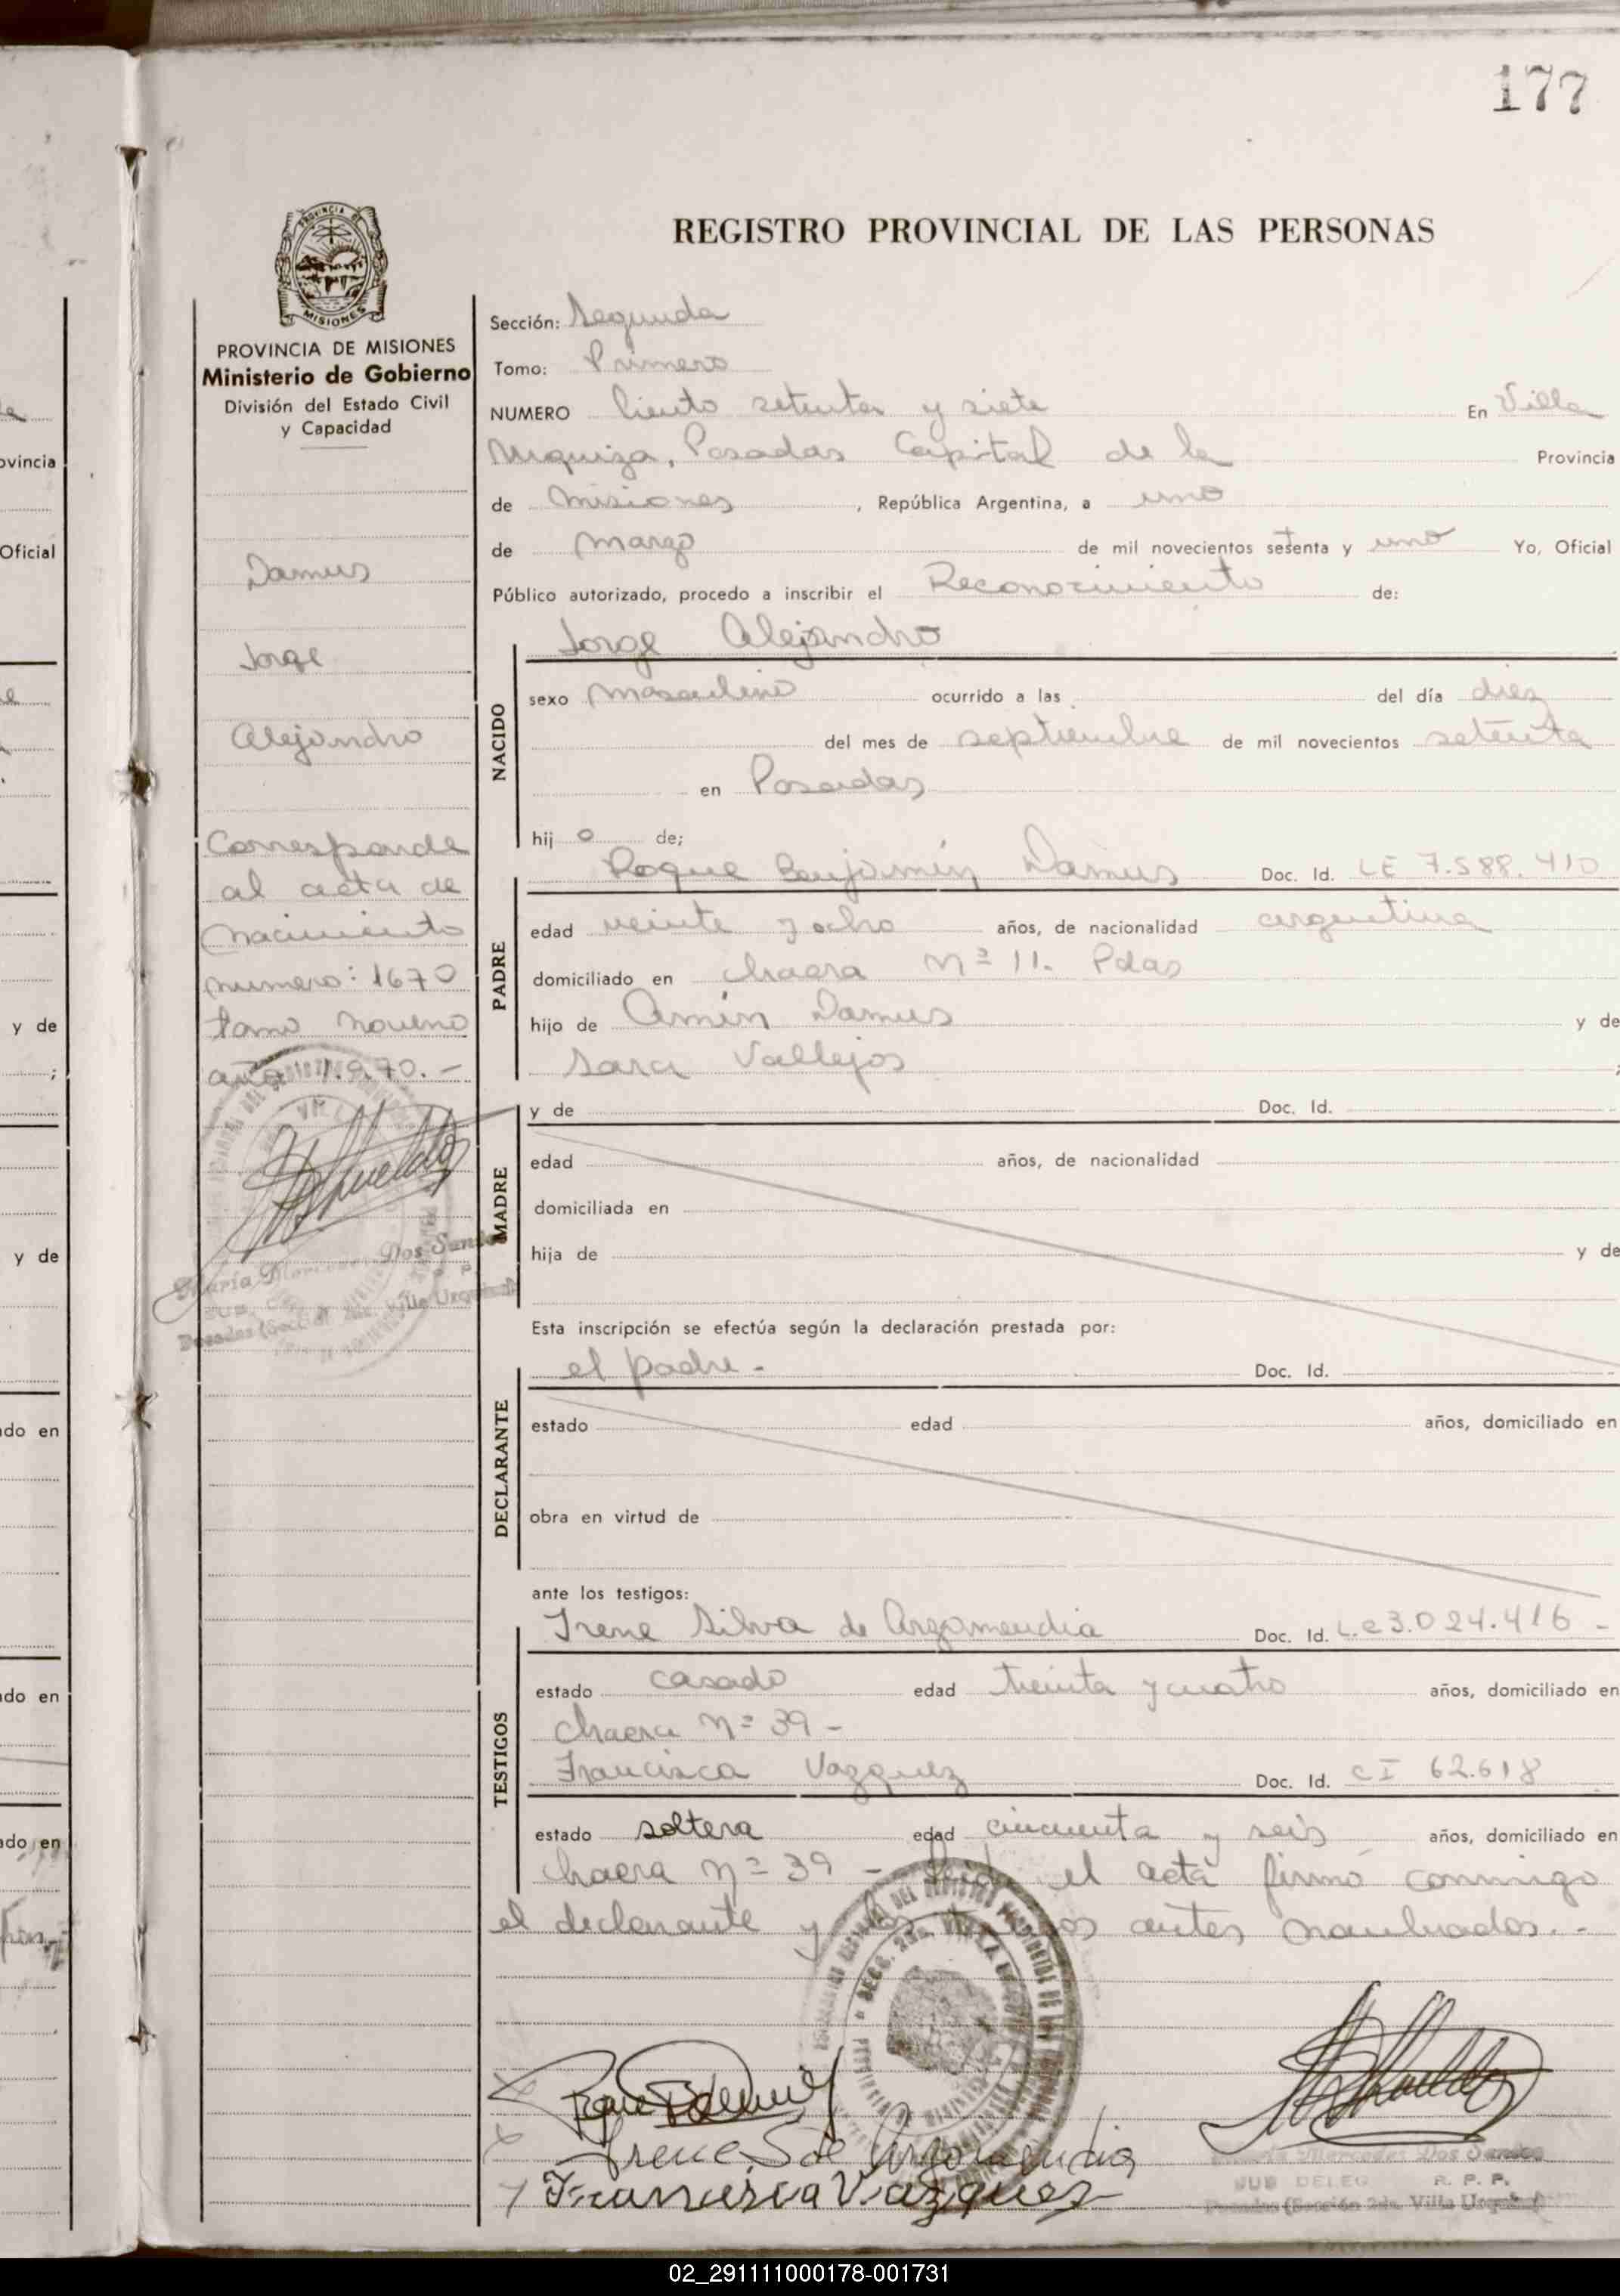 177
PROVINCIA DE MISIONES
REGISTRO PROVINCIAL DE LAS PERSONAS
PROVINCIA DE MISIONES
Ministerio de Gobierno
División del Estado Civil
y Capacidad
Damus
Jorge
Alejandro
Corresponde
al acta de
nacimiento
numero: 1670
tomo noveno
año 1.970.-
María Dos Santos
Posadas (Sección 2da. Villa Urquiza)
Sección: Segunda
Tomo: Primero
NUMERO Ciento setenta y siete En Villa
Urquiza, Posadas Capital de la Provincia
de Misiones, República Argentina, a uno
de marzo de mil novecientos setenta y uno Yo, Oficial
Público autorizado, procedo a inscribir el Reconocimiento de:
Jorge Alejandro
NACIDO
sexo masculino ocurrido a las del día diez
del mes de septiembre de mil novecientos setenta
en Posadas
hij o de;
Roque Benjamín Damus Doc. Id. LE 7.588.410
PADRE
edad veinte y ocho años, de nacionalidad argentina
domiciliado en chacra Nº 11. Pdas
hijo de Amin Damus y de
Sara Vallejos
y de Doc. Id.
MADRE
edad años, de nacionalidad
domiciliada en
hija de y de
Esta inscripción se efectúa según la declaración prestada por:
el padre - Doc. Id.
DECLARANTE
estado edad años, domiciliado en
obra en virtud de
ante los testigos:
Irene Silva de Argomendia Doc. Id. L.C 3.024.416 -
TESTIGOS
estado casado edad treinta y cuatro años, domiciliado en
Chacra Nº 39 -
Francisca Vazquez Doc. Id. CI 62.618
estado soltera edad cincuenta y seis años, domiciliado en
chacra Nº 39 - Leida el acta firmó conmigo
el declarante y los testigos antes nombrados.-
Irene S de Argomendia
Francisca Vazquez
María Mercedes Dos Santos
SUB DELEG R. P. P.
Posadas (Sección 2da. Villa Urquiza)
02_291111000178-001731